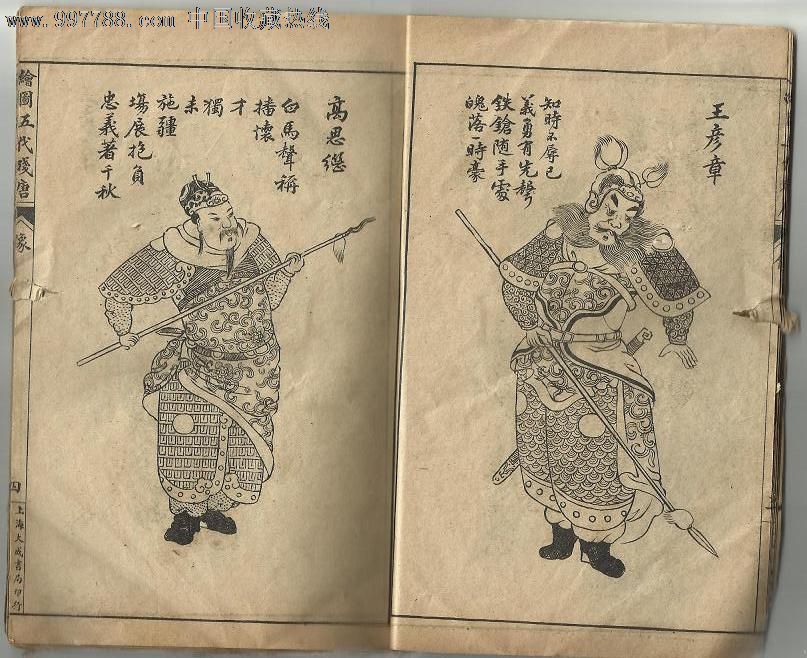 www.997788.com 中国收藏热线
王彦章
知時不辱已
義勇有先聲
鉄鎗随手處
魄落一時豪
高思继
白馬聲稱
播懷
才
獨
未
施疆
塲展抱負
忠義著千秋
繪圖五代残唐
象
四
上海大成書局印行